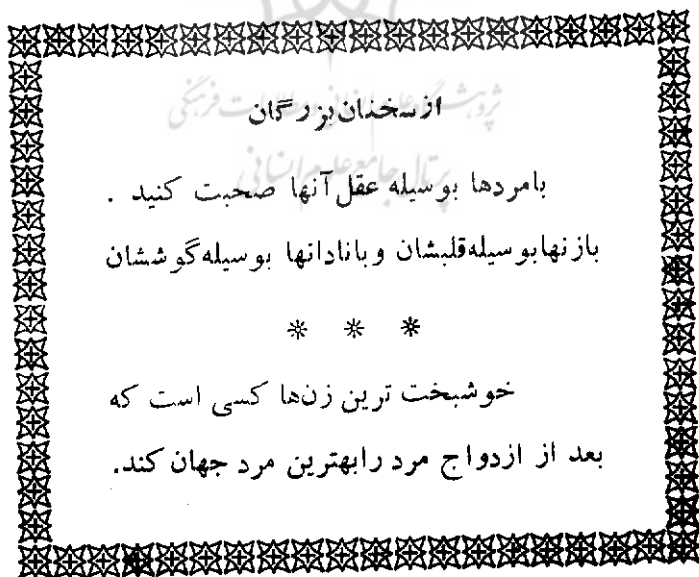 پژوهشگاه علوم انسانی و مطالعات فرهنگی
از سخنان بزرگان
پرتال جامع علوم انسانی
بامردها بوسیله عقل آنها صحبت کنید .
بازنهابوسیله‌قلبشان وبانادانها بوسیله‌گوششان
* * *
خوشبخت ترین زن‌ها کسی است که
بعد از ازدواج مرد رابهترین مرد جهان کند.